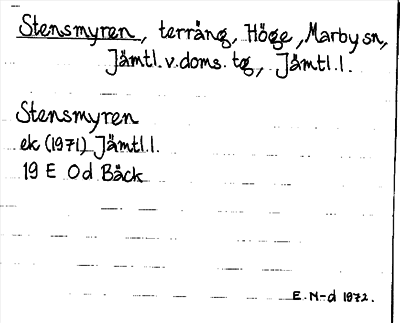 Stensmyren, terräng, Höge, Marby sn,
Jämtl.v.doms. tg, Jämtl.l.
Stensmyren
ek (1971) Jämtl.l.
19 E 0d Bäck
E.N-d 1972.